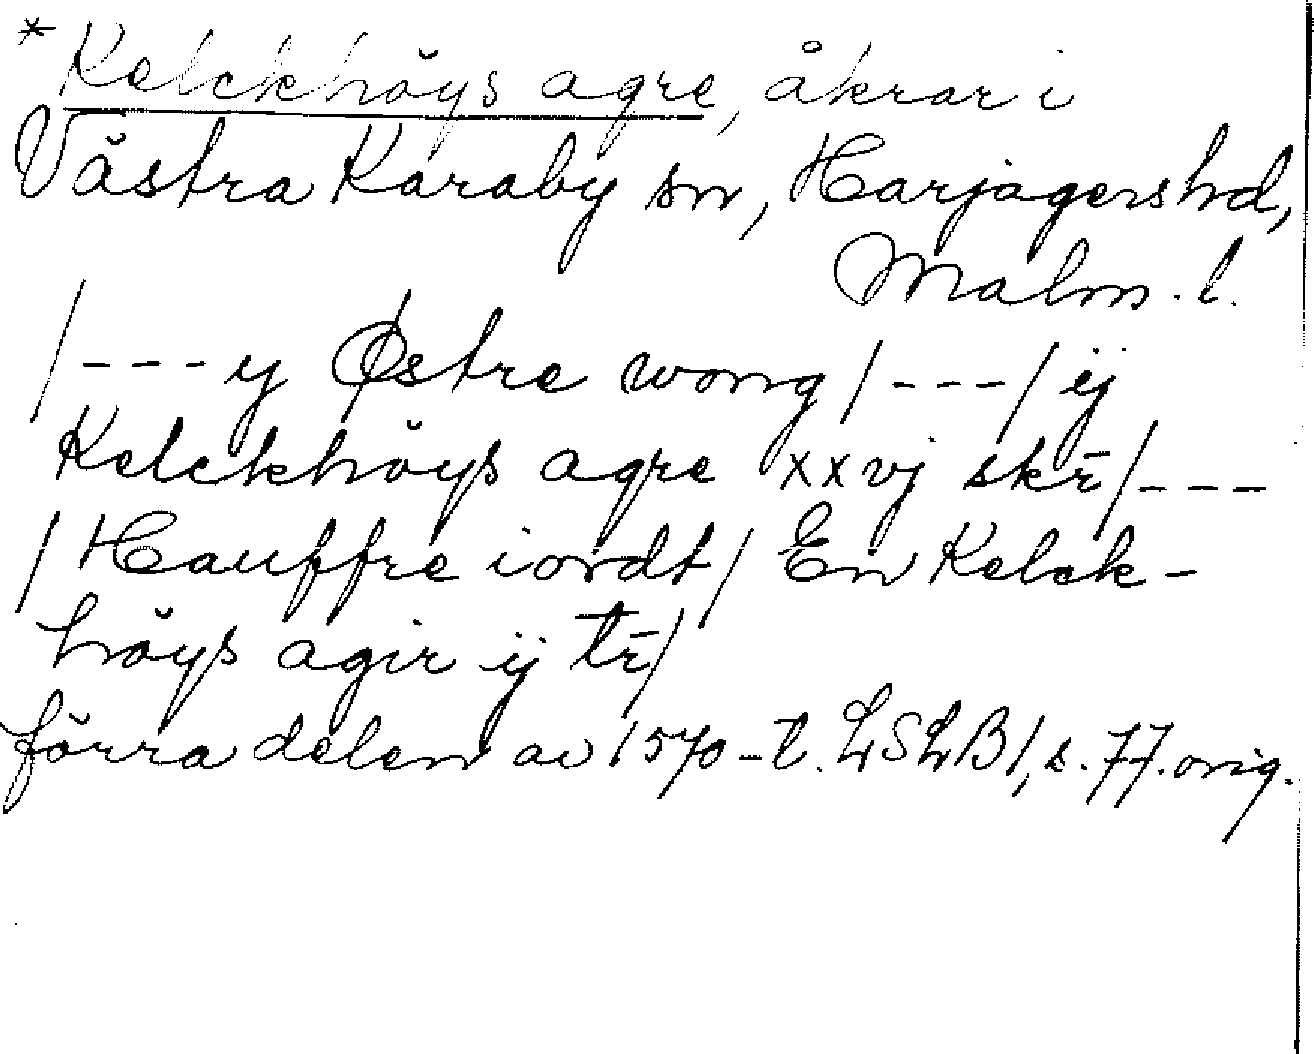 * Kelckhöys agre, åkrar i
Västra Karaby sn, Harjagers hd,
Malm. l.
/--- y Østre wong /---/ ij
Kelckhöys agre xxvj skr̄ /---
/ Hauffre iordt / En Kelck-
höys agir ij tr̄ /
förra delen av 1570-t. LSLB1, s. 77. orig.